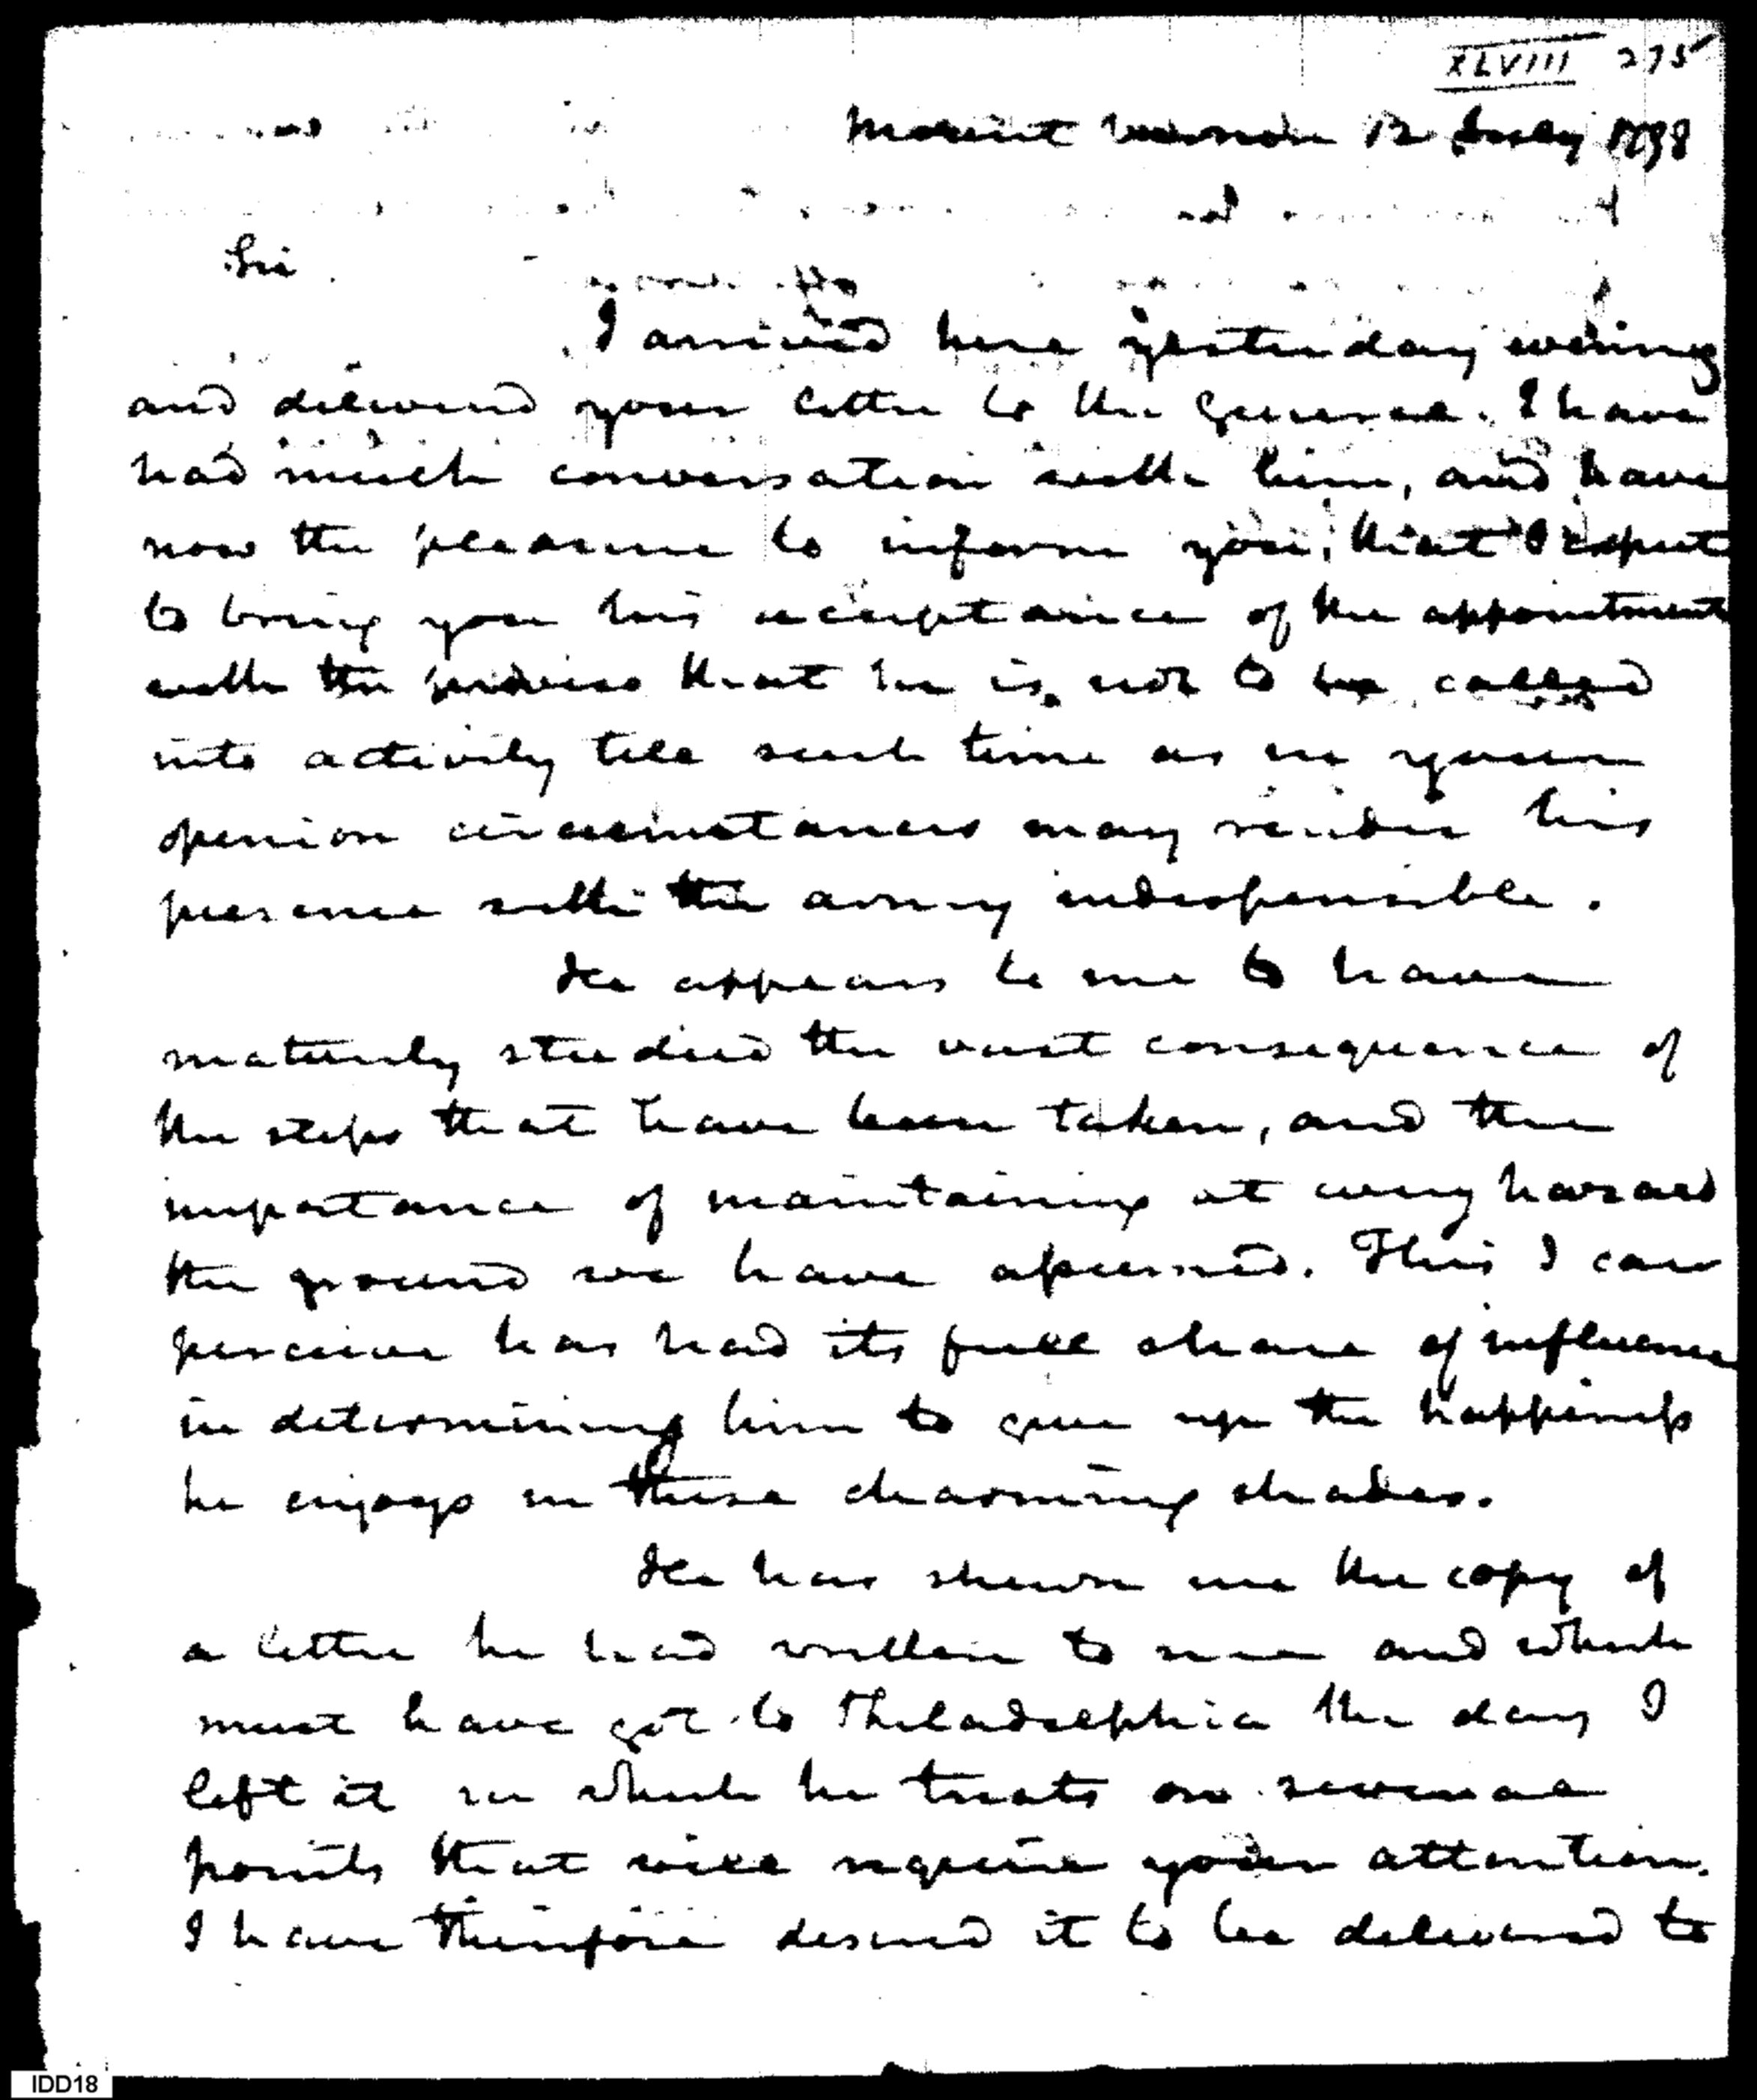 XLVIII 275
Mount Vernon 12 July 1798
Sir
I arrived here yesterday evening
and delivered your letter to the General. I have
had much conversation with him, and have
now the pleasure to inform you, that I expect
to bring you his acceptance of the appointment
with the proviso that he is not to be called
into activity till such time as in your
openion circumstances may render his
presence with the army indespensible.
He appears to me to have
maturely studied the vast consequence of
the steps that have been taken, and the
importance of maintaining at every hazard
the ground we have assumed. This I can
perceive has had its full share of influence
in determining him to give up the happiness
he enjoys in these charming shades.
He has shewn me the copy of
a letter he had written to me and which
must have got to Philadelphia the day I
left it in which he treats on several
points that will require your attention.
I have therefore desired it to be delivered to
IDD18